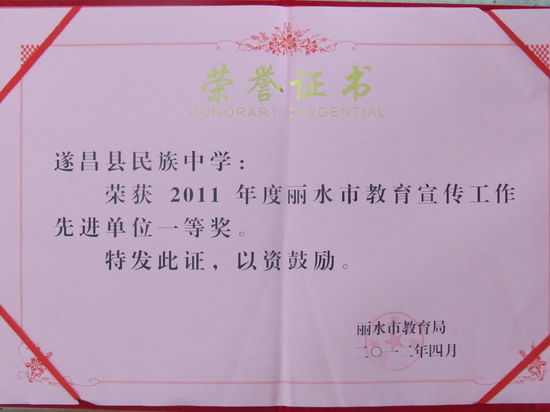 荣誉证书
HONORARY CREDENTIAL
遂昌县民族中学：
荣获 2011 年度丽水市教育宣传工作
先进单位一等奖。
特发此证，以资鼓励。
丽水市教育局
二〇一二年四月